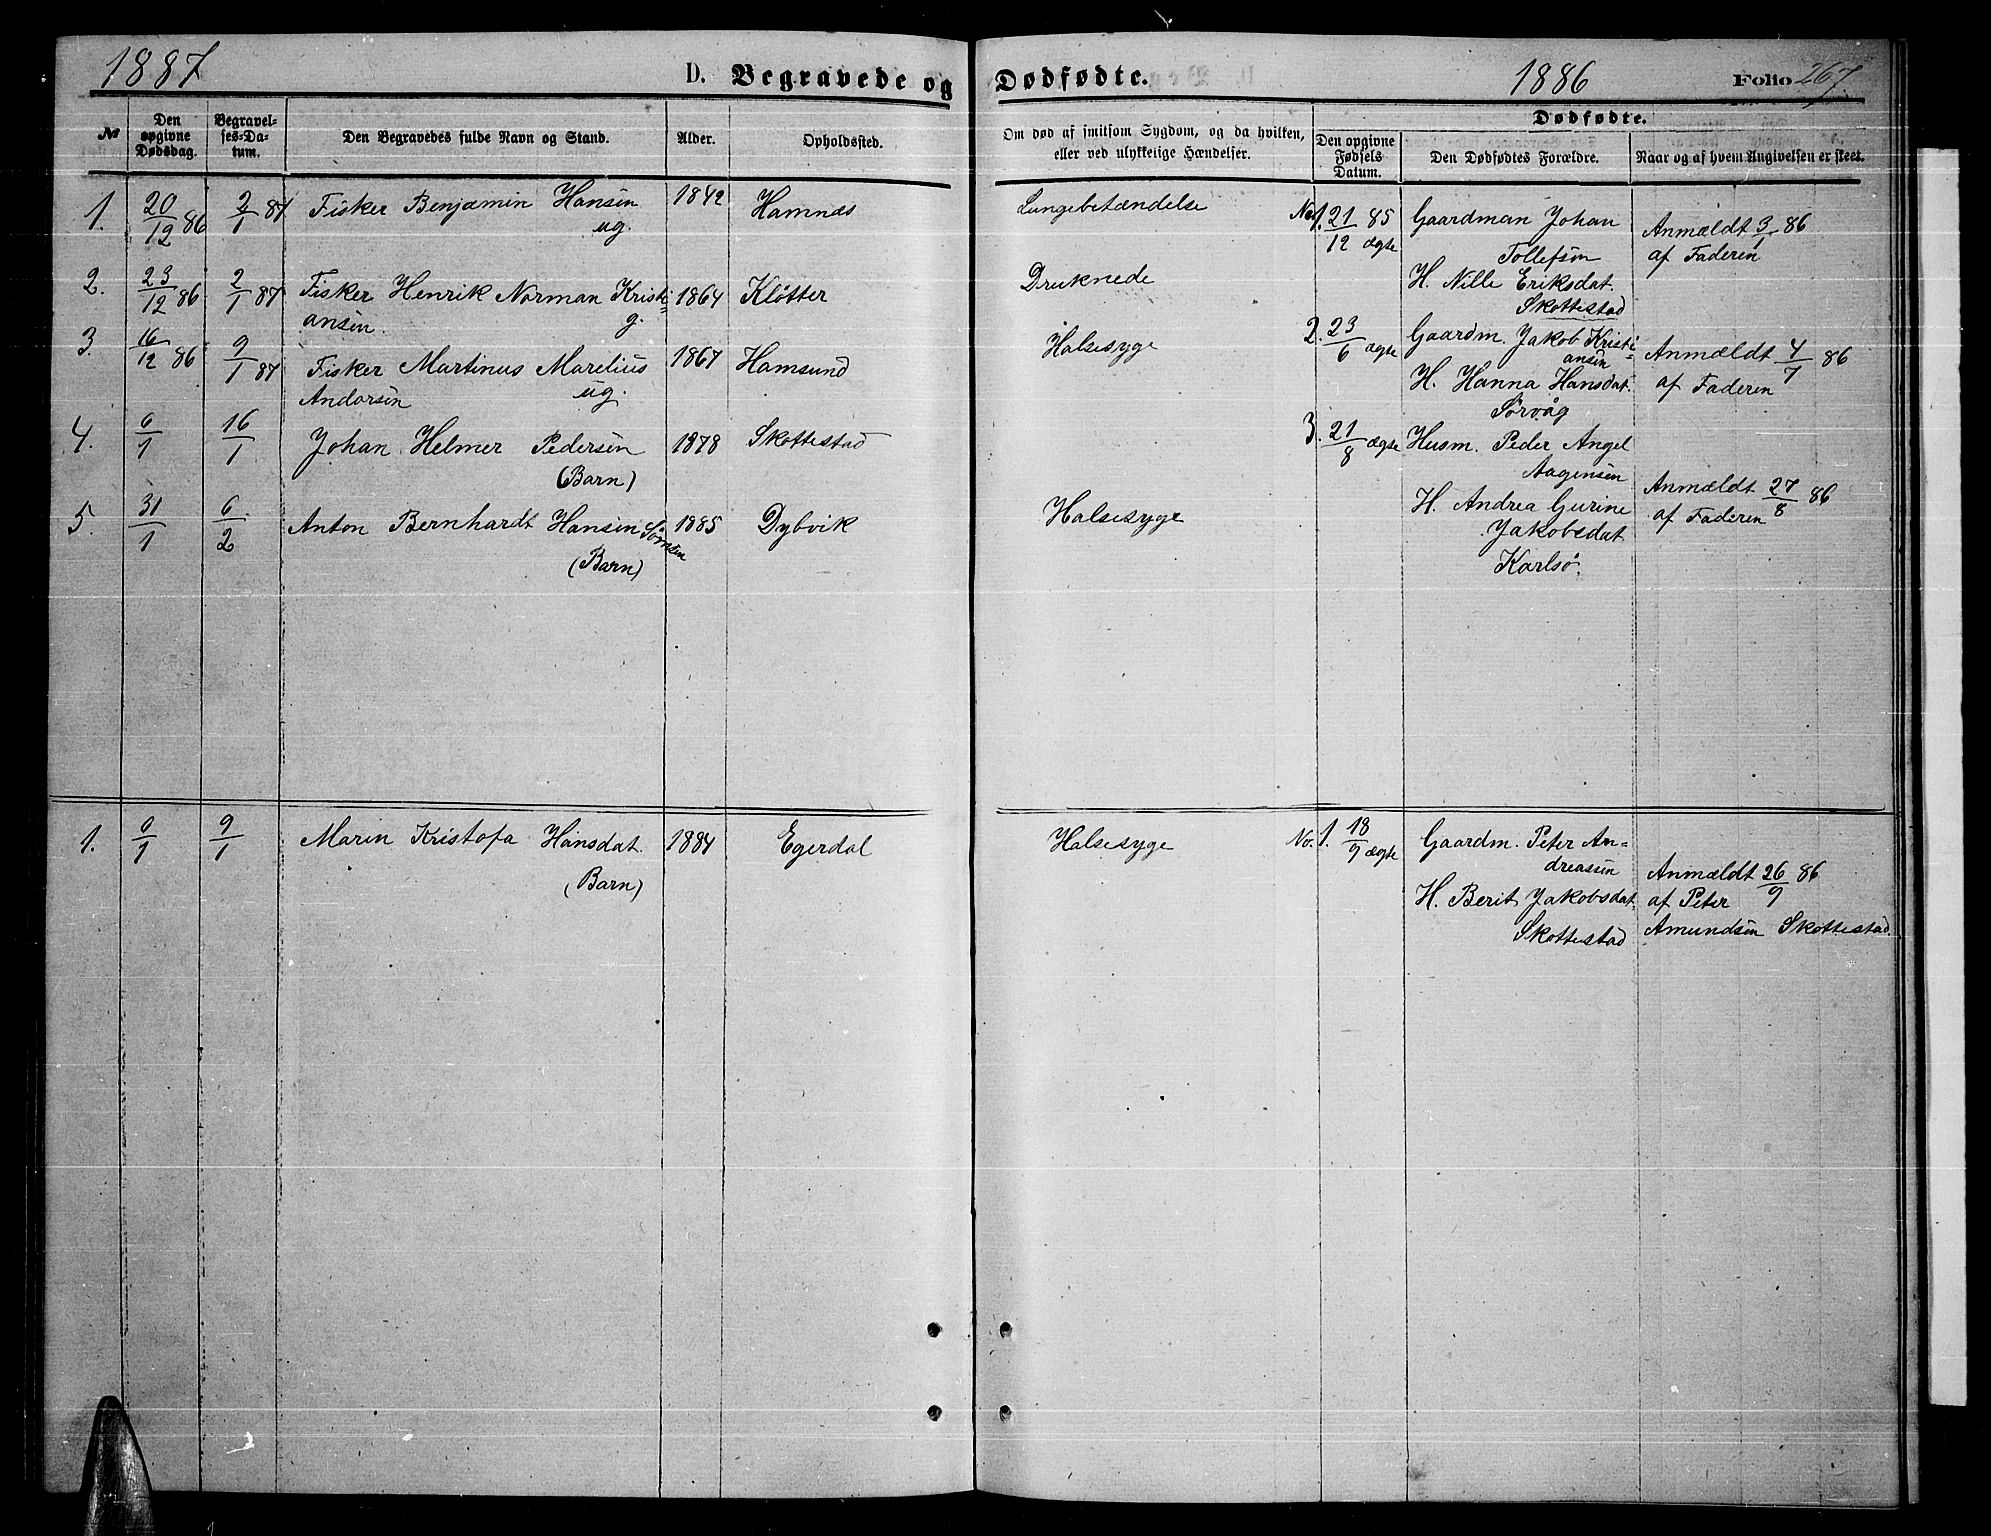 1887 D. Begravede og Dødfødte. 1886 Folio 267.
№ Den opgivne Dødsdag. Begravelses-Datum. Den Begravedes fulde Navn og Stand. Alder. Opholdssted.
Om død af smitsom Sygdom, og da hvilken, eller ved ulykkelige Hændelser.
Dødfødte.
Den opgivne Fødsels Datum. Den Dødfødtes Forældre. Naar og af hvem Angivelsen er skeet.
1. 20/12 86 2/1 87 Fisker Benjamin Hansen ug. 1842 Hamnæs Lungebetændelse
2. 23/12 86 2/1 87 Fisker Henrik Norman Kristi=
ansen g. 1864 Kløtter Druknede
3. 16/12 86 9/1 87 Fisker Martinus Marelius 1867 Hamsund Halsesyge
Andorsen ug.
4. 6/1 16/1 Johan Helmer Pedersen 1878 Skottestad
(Barn)
5. 31/1 6/2 Anton Bernhardt Hansen 1885 Dybvik Halsesyge
(Barn)
No. 1. 21/12 85 ægte Gaardman Johan
Tollefsen
H. Nille Eriksdat.
Skottestad
Anmældt 3/1 86
af Faderen
2. 23/6 ægte Gaardm. Jakob Kristi=
ansen
H. Hanna Hansdat.
Sørvåg
Anmældt 4/7 86
af Faderen
3. 21/8 ægte Husm. Peder Angel
Aagensen
H. Andrea Gurine
Jakobsdat
Karlsø.
Anmældt 27/8 86
af Faderen
1. 6/1 9/1 Marin Kristofa Hansdat. 1884 Egerdal Halsesyge
(Barn)
No. 1. 18/9 ægte Gaardm. Peter An=
dreasen
H. Berit Jakobsdat.
Skottestad
Anmældt 26/9 86
af Peter
Amundsen Skottestad